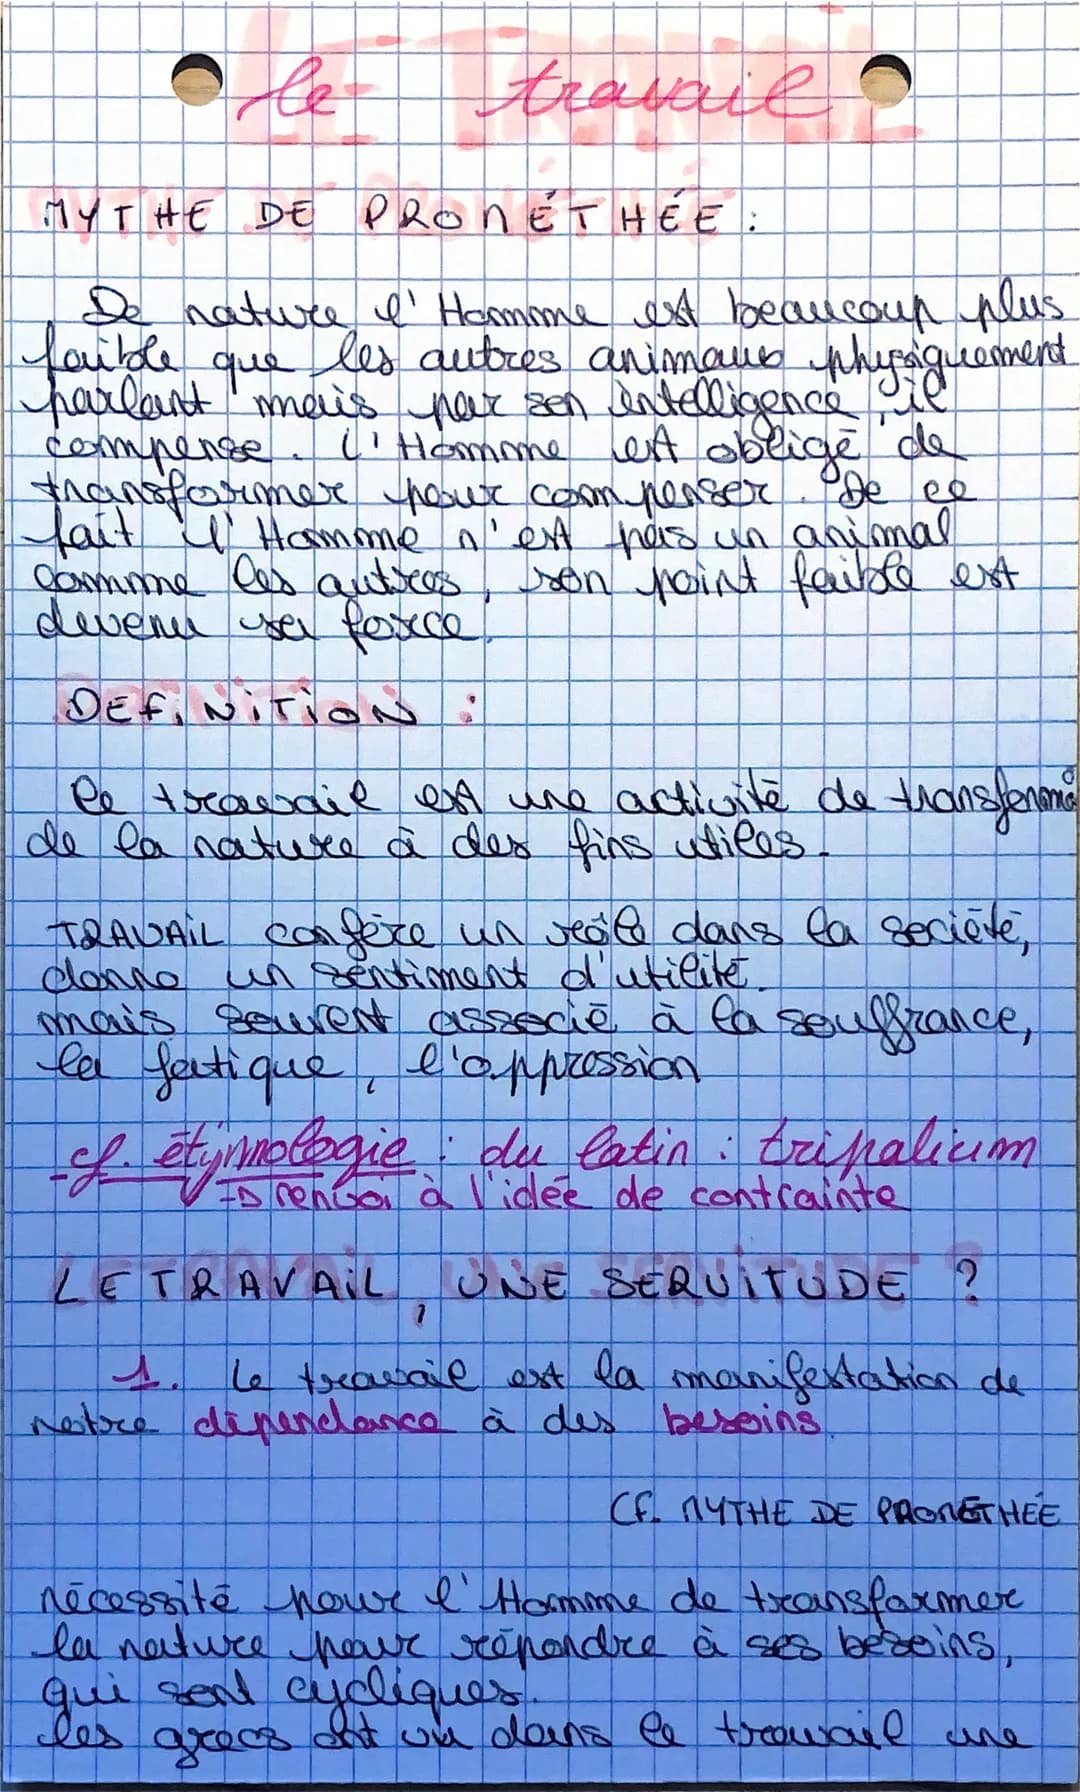 le travail
MYTHE DE PROMÉTHÉE :
De nature l'Homme est beaucoup plus
faible que les autres animaux physiquement
parlant mais par son intelligence, il
compense. L'Homme est obligé de
transformer pour compenser. De ce
fait l'Homme n'est pas un animal
comme les autres, son point faible est
devenu sa force.
DEFINITION :
Le travail est une activité de transforma
de la nature à des fins utiles.
TRAVAIL confère un rôle dans la société,
donne un sentiment d'utilité.
mais souvent associé à la souffrance,
la fatique, l'oppression
cf. étymologie : du latin : tripalium
→ renvoi à l'idée de contrainte
LE TRAVAIL, UNE SERVITUDE ?
1. Le travail est la manifestation de
notre dépendance à des besoins.
CF. MYTHE DE PROMÉTHÉE
nécessité pour l'Homme de transformer
la nature pour répondre à ses besoins,
qui sont cycliques.
les grecs ont vu dans le travail une